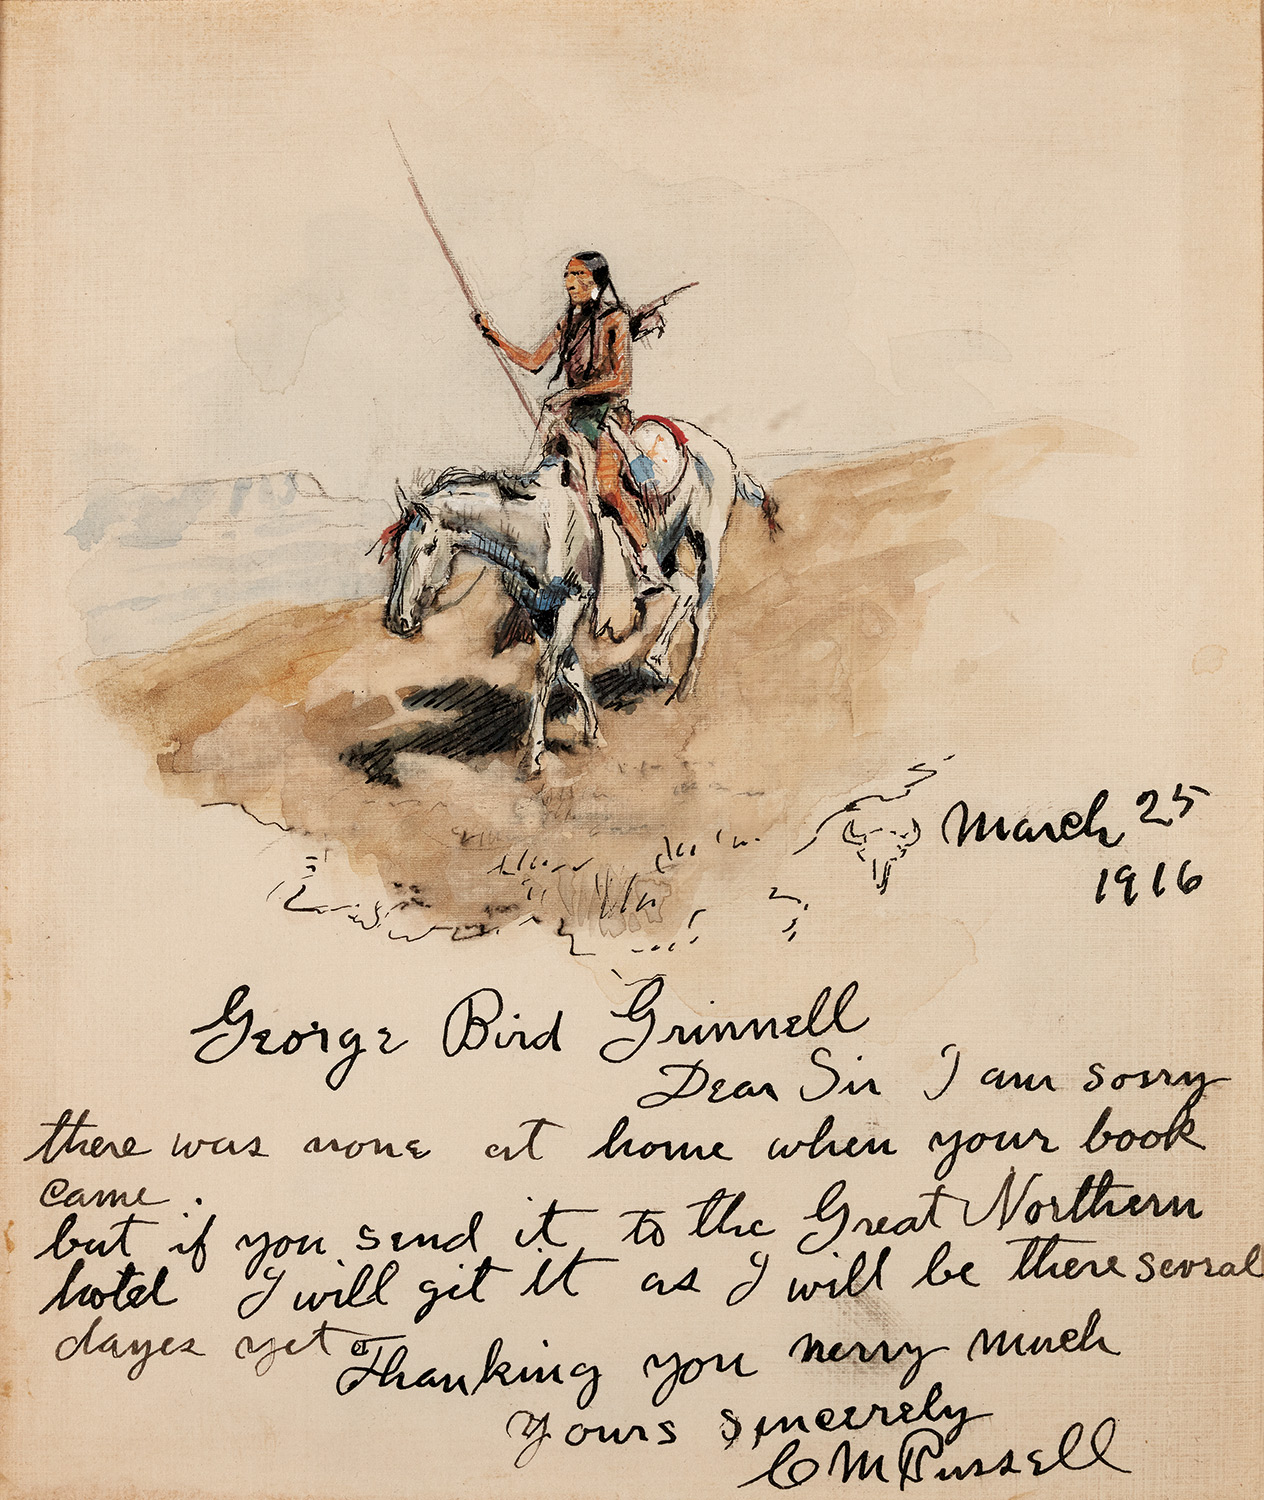 March 25
1916
George Bird Grinnell
Dear Sir I am sorry
there was none at home when your book
came.
but if you send it to the Great Northern
hotel I will git it as I will be there sevral
dayes yet
Thanking you verry much
Yours sincerely
C M Russell